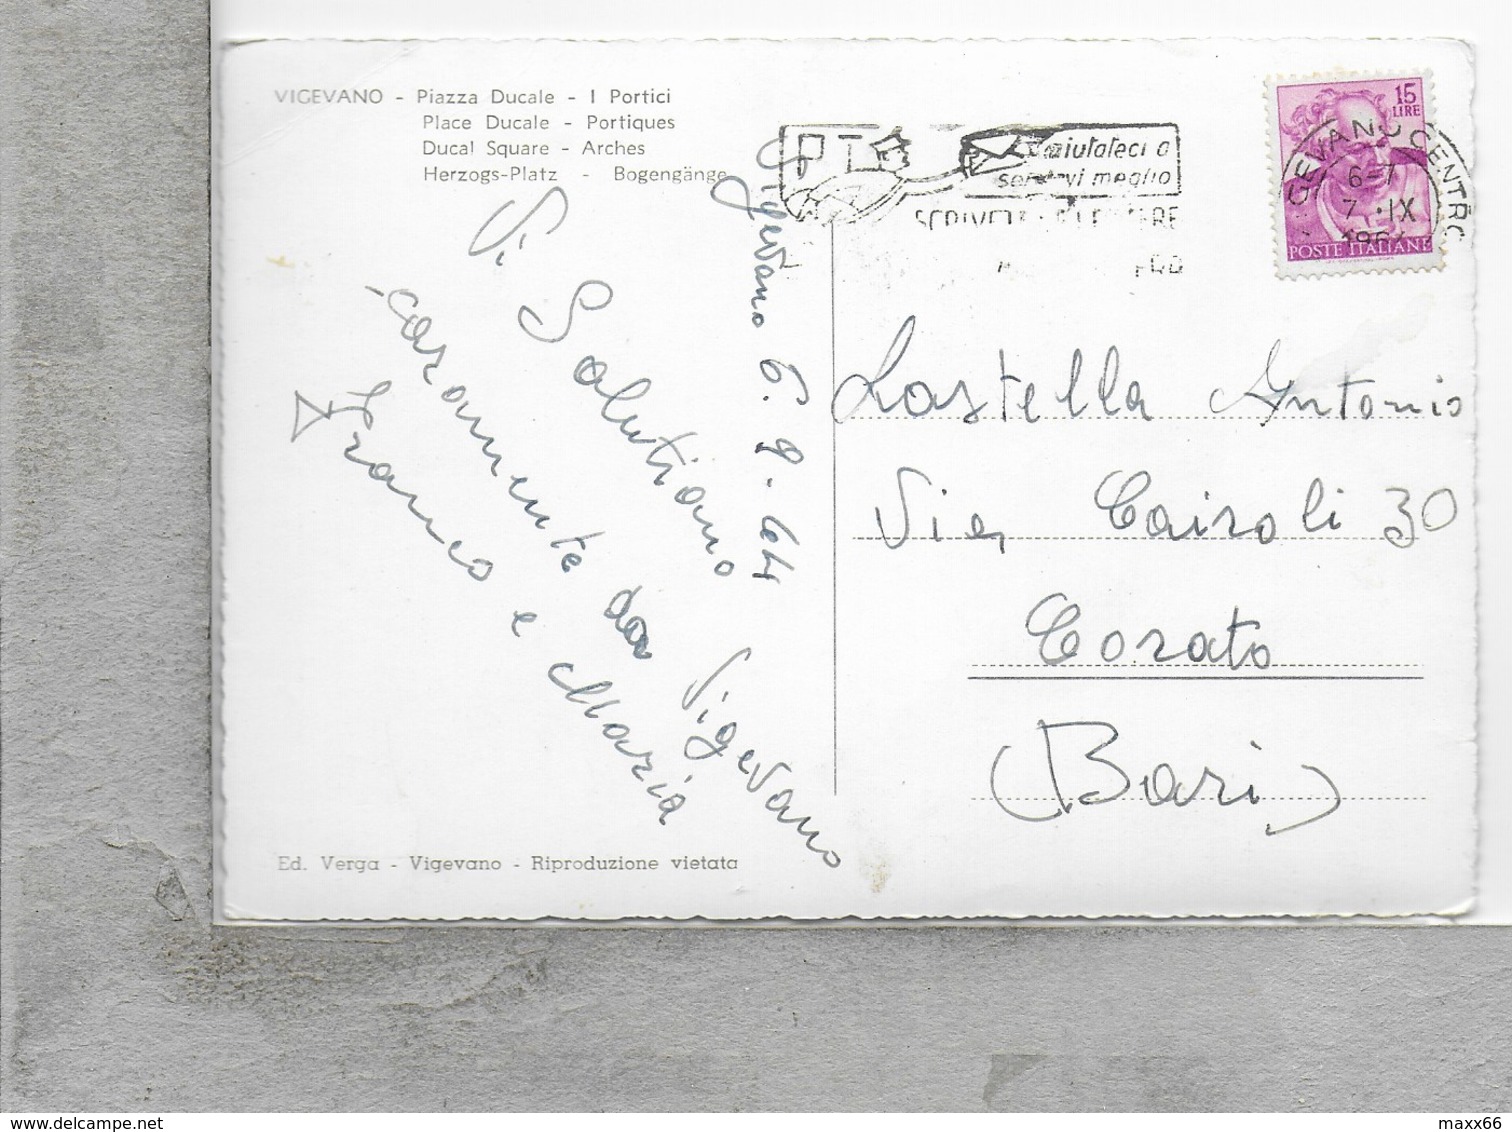 VIGEVANO - Piazza Ducale - I Portici
Place Ducale - Portiques
Ducal Square - Arches
Herzogs-Platz - Bogengänge
15
LIRE
POSTE ITALIANE
VIGEVANO CENTRO
6-7
7 · IX
PT
aiutateci a
servirvi meglio
Vigevano 6. 9. 64
Vi Salutiamo
caramente da Vigevano
Franco e Maria
Lastella Antonio
Via Cairoli 30
Corato
(Bari)
Ed. Verga - Vigevano - Riproduzione vietata
maxx66